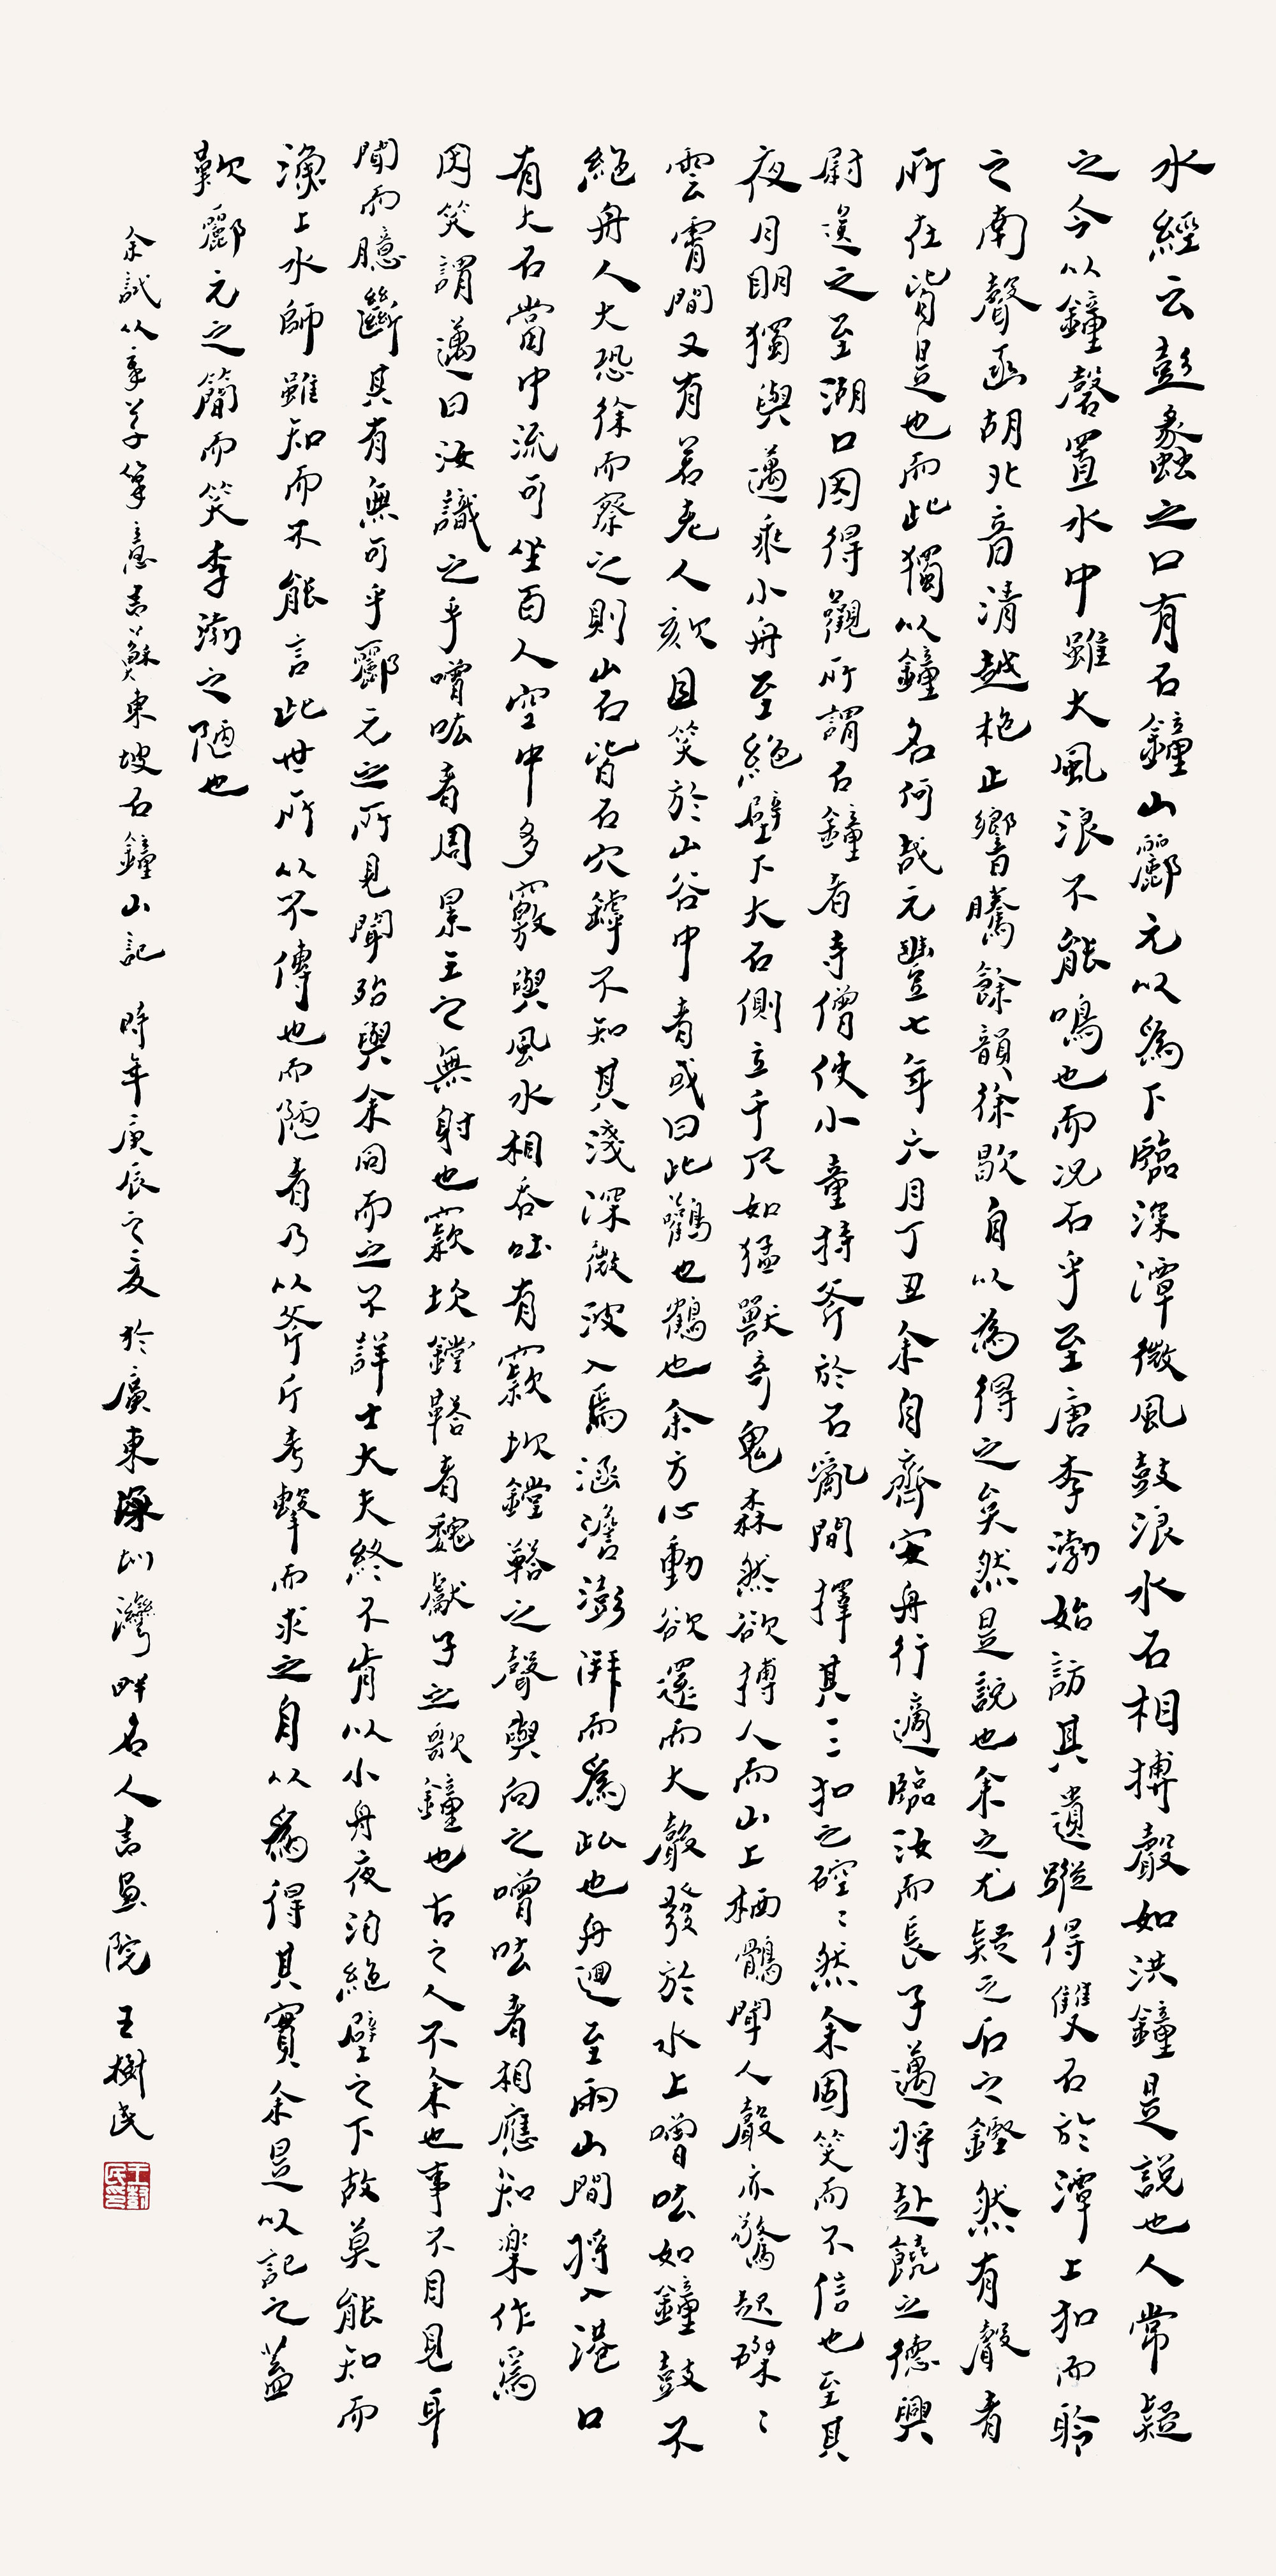 水經云彭蠡之口有石鐘山酈元以為下臨深潭微風鼓浪水石相搏聲如洪鐘是說也人常疑
之今以鐘磬置水中雖大風浪不能鳴也而况石乎至唐李渤始訪其遺蹤得雙石於潭上扣而聆
之南聲函胡北音清越枹止響騰餘韻徐歇自以為得之矣然是說也余之尤疑之石之鏗然有聲者
所在皆是也而此獨以鐘名何哉元豐七年六月丁丑余自齊安舟行適臨汝而長子邁將赴饒之德興
尉送之至湖口因得觀所謂石鐘者寺僧使小童持斧於石亂間擇其一二扣之硿〻然余固笑而不信也至其
夜月明獨與邁乘小舟至絕壁下大石側立千尺如猛獸奇鬼森然欲搏人而山上栖鶻聞人聲亦驚起磔〻
雲霄間又有若老人欬且笑於山谷中者或曰此鸛也鶴也余方心動欲還而大聲發於水上噌吰如鐘鼓不
絕舟人大恐徐而察之則山石皆石穴罅不知其淺深微波入焉涵澹澎湃而為此也舟迴至兩山間將入港口
有大石當中流可坐百人空中多竅與風水相吞吐有窾坎鏜鞳之聲與向之噌吰者相應如樂作焉
因笑謂邁曰汝識之乎噌吰者周景王之無射也窾坎鏜鞳者魏獻子之歌鐘也古之人不余也事不目見耳
聞而臆斷其有無可乎酈元之所見聞殆與余同而之不詳士大夫終不肯以小舟夜泊絕壁之下故莫能知而
漁工水師雖知而不能言此世所以不傳也而陋者乃以斧斤考擊而求之自以為得其實余是以記之蓋
歎酈元之簡而笑李渤之陋也
余試以章草筆意書蘇東坡石鐘山記 時年庚辰之夏於廣東深圳灣畔名人書畫院 王樹民
王樹民印